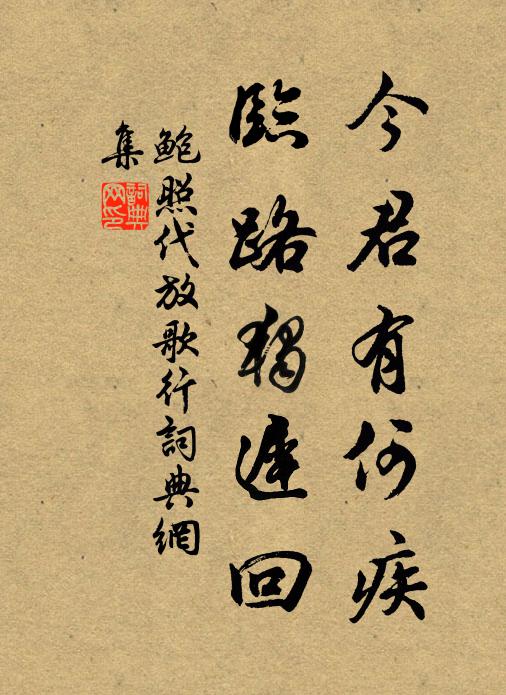 今君有何疾
臨路獨遲回
鮑照代放歌行詞典網
集
詞典
网印